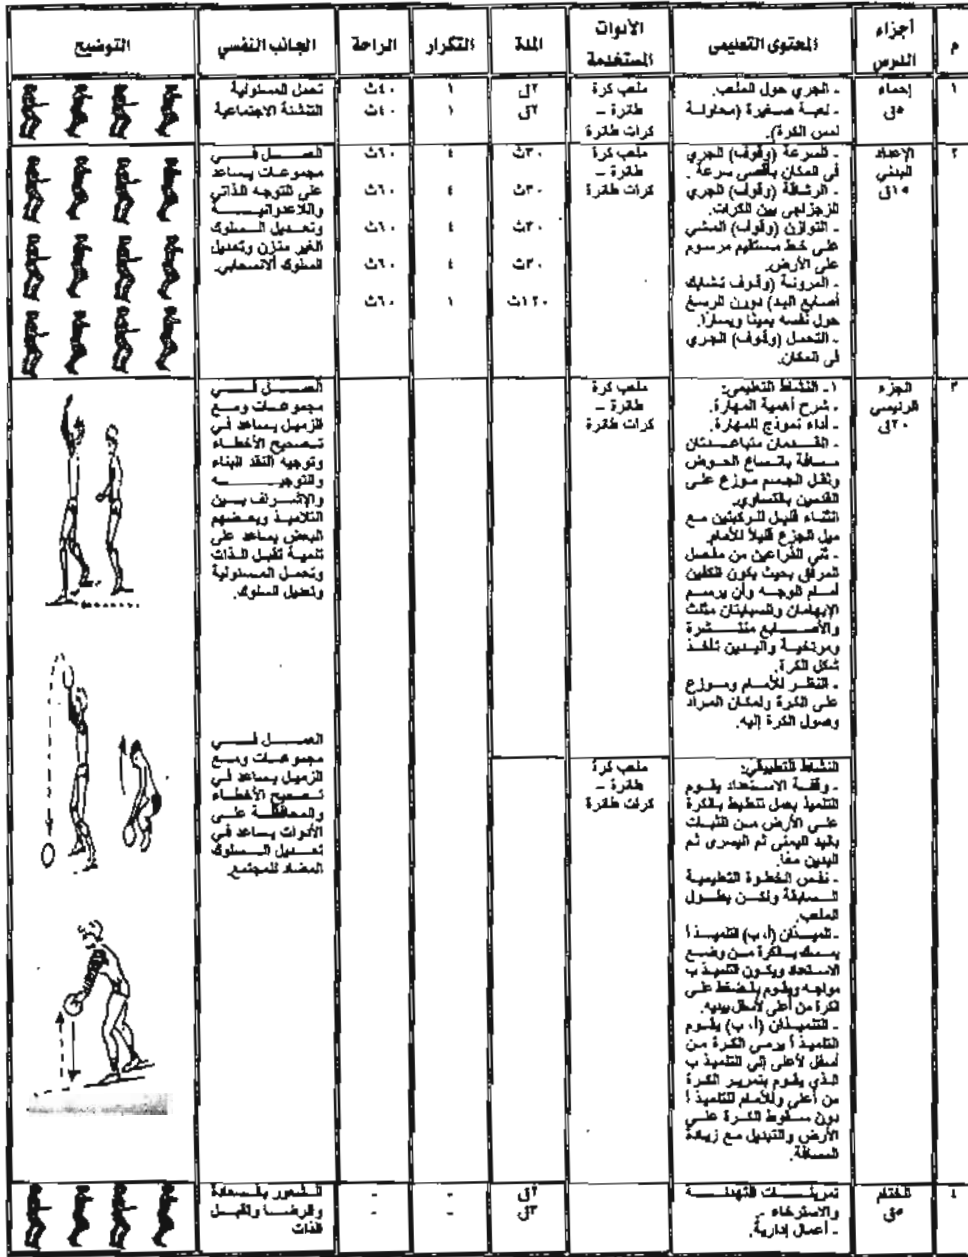 م
أجزاء
الدرس
المحتوى التعليمى
الأدوات
المستخدمة
المدة
التكرار
الراحة
الجانب النفسي
التوضيح
١
إحماء
٥ق
ـ الجري حول الملعب.
ـ لعبة صغيرة (محاولة
لمس الكرة).
ملعب كرة
طائرة –
كرات طائرة
٢ق
٣ق
١
١
٤٠ث
٤٠ث
تحمل المسئولية
التنشئة الاجتماعية
٢
الإعداد
البدني
١٥ق
ـ السرعة (وقوف) الجري
فى المكان بأقصى سرعة.
ـ الرشاقة (وقوف) الجري
الزجزاجى بين الكرات.
ـ التوازن (وقوف) المشي
على خط مستقيم مرسوم
على الأرض.
ـ المرونة (وقوف تشابك
أصابع اليد) دوران الرسغ
حول نفسه يمينا ويسارا.
ـ التحمل (وقوف) الجري
فى المكان.
ملعب كرة
طائرة –
كرات طائرة
٣٠ث
٣٠ث
٣٠ث
٣٠ث
١٢٠ث
٤
٤
٤
٤
١
٦٠ث
٦٠ث
٦٠ث
٦٠ث
٦٠ث
العمل فى
مجموعات يساعد
على التوجه الذاتي
واللاعدوانية
وتعديل السلوك
الغير متزن وتعديل
السلوك الانسحابي.
٣
الجزء
الرئيسى
٢٠ق
١ـ النشاط التعليمى:
ـ شرح أهمية المهارة.
ـ أداء نموذج للمهارة.
ـ القدمان متباعدتان
مسافة باتساع الحوض
وثقل الجسم موزع على
القدمين بالتساوي.
انثناء قليل للركبتين مع
ميل الجزع قليلا للأمام.
ـ ثني الذراعين من مفصل
المرفق بحيث يكون الكفين
أمام الوجه وأن يرسم
الإبهامان والسبابتان مثلث
والأصابع منتشرة
ومرتخية واليدين تأخذ
شكل الكرة.
ـ النظر للأمام وموزع
على الكرة ولمكان المراد
وصول الكرة إليه.
ملعب كرة
طائرة –
كرات طائرة
العمل فى
مجموعات ومع
الزميل يساعد في
تصحيح الأخطاء
وتوجيه النقد البناء
والتوجيه
والإشراف بين
التلاميذ وبعضهم
البعض يساعد على
تنمية تقبل الذات
وتحمل المسئولية
وتعديل السلوك.
النشاط التطبيقي:
ـ وقفة الاستعداد يقوم
التلميذ بعمل تنطيط بالكرة
على الأرض من الثبات
باليد اليمنى ثم اليسرى ثم
اليدين معا.
ـ نفس الخطوة التعليمية
السابقة ولكن بطول
الملعب.
ـ تلميذان (أ، ب) التلميذ أ
يمسك بالكرة من وضع
الاستعداد ويكون التلميذ ب
مواجه ويقوم بالضغط على
الكرة من أعلى لأسفل بيديه.
ـ التلميذان (أ، ب) يقوم
التلميذ أ برمى الكرة من
أسفل لأعلى إلى التلميذ ب
الذى يقوم بتمرير الكرة
من أعلى وللأمام للتلميذ أ
دون سقوط الكرة على
الأرض والتبديل مع زيادة
المسافة.
ملعب كرة
طائرة –
كرات طائرة
العمل فى
مجموعات ومع
الزميل يساعد في
تصحيح الأخطاء
والمحافظة على
الأدوات يساعد في
تعديل السلوك
المضاد للمجتمع.
٤
الختام
٥ق
تمرينات التهدئة
والاسترخاء ـ
ـ أعمال إدارية.
٢ق
٣ق
-
-
-
-
الشعور بالسعادة
والرضا وتقبل
الذات